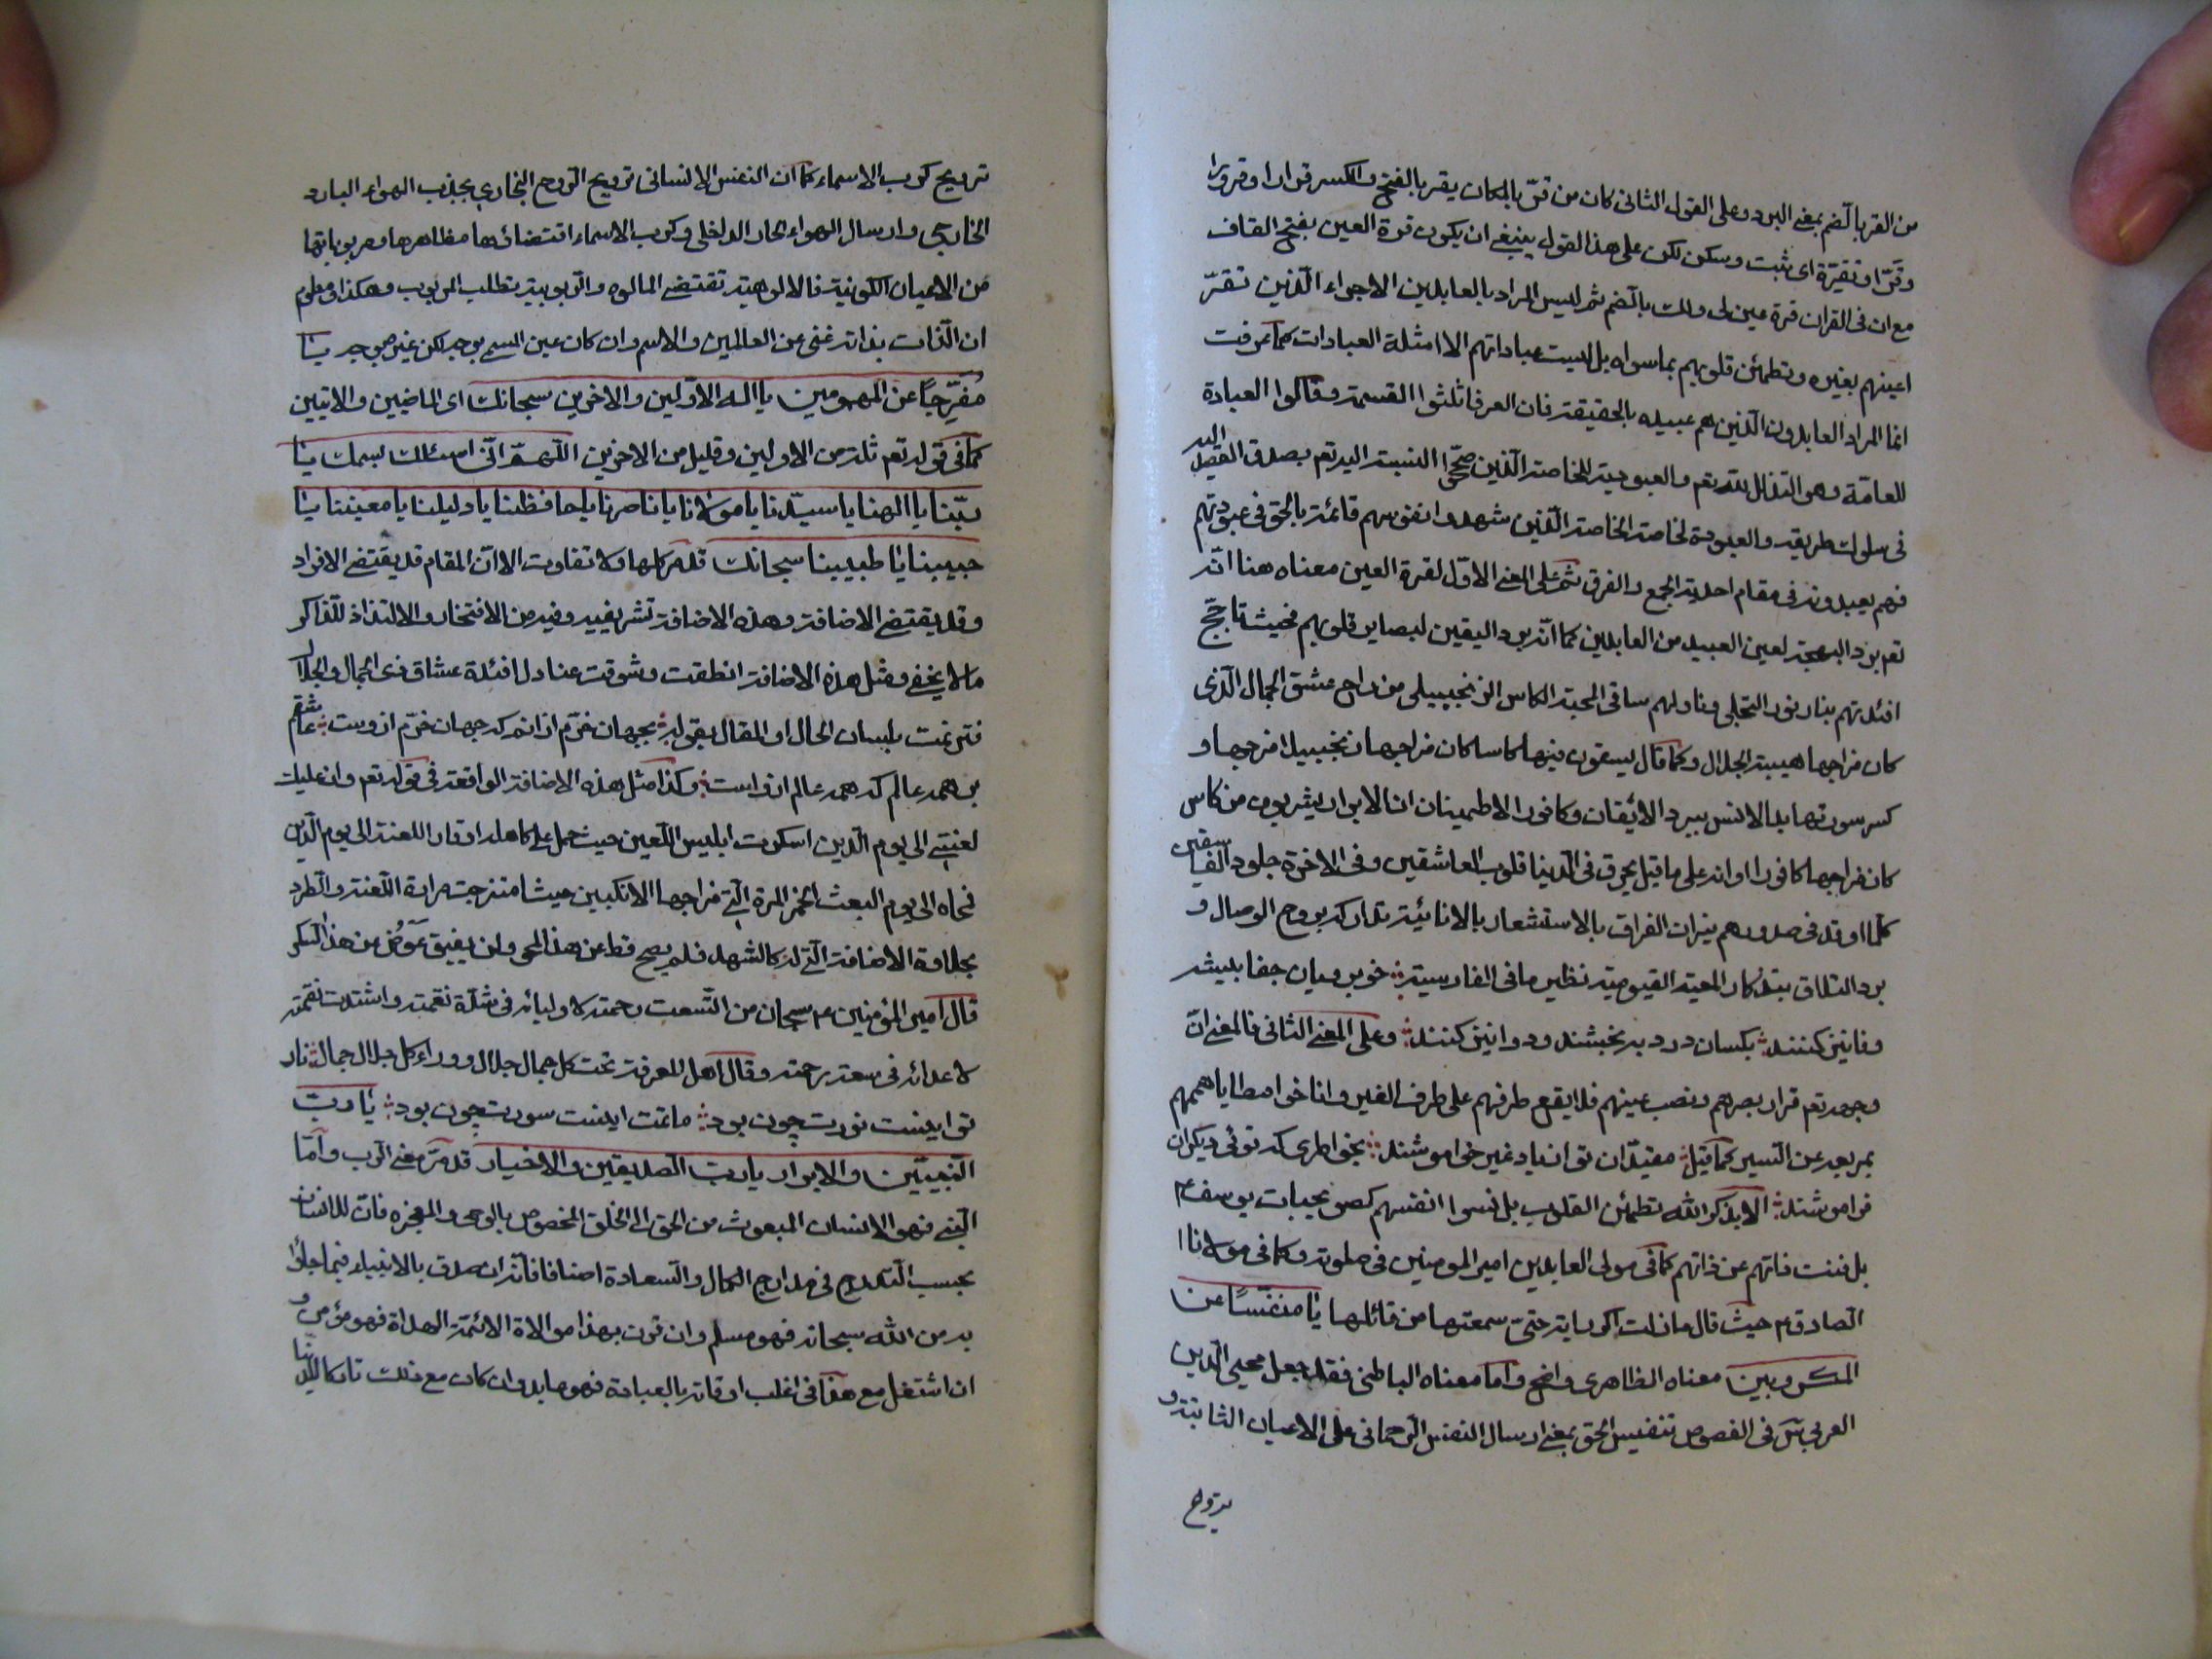 من القر بالضم بمعنى البرد وعلى القول الثانى كان من قرّ بالمكان يقر بالفتح والكسر قرارا وقرورا
وقرّا وتقرّة اى ثبت وسكن لكن على هذا القول ينبغى ان يكون قرة العين بفتح القاف
مع ان فى القران قرة عين لى ولك بالضم ثم ليس المراد بالعابدين الاجراء الّذين تقرّ
اعينهم بغيره وتطمئن قلوبهم بما سواه بل ليست عباداتهم الا امثلة العبادات كما عرفت
انما المراد العابدون الّذين هم عبيده بالحقيقة فان العرفا ثلثوا القسمة وقالوا العبادة
للعامّة وهى التذلل لله تعم والعبودية للخاصة الّذين صحّحوا النسبة اليه تعم بصدق القصد اليه
فى سلوك طريقه والعبودة لخاصة الخاصة الّذين شهدوا نفوسهم قائمة بالحق فى عبودتهم
فهم يعبدونه فى مقام احدية الجمع والفرق ثم على المعنى الاوّل لقرة العين معناه هنا انّه
تعم برد البهجة لعين العبيد من العابدين كما انّه برد اليقين لبصاير قلوبهم فحيث تاجّج
افئدتهم بنار نور التجلى وناولهم ساقى المحبة الكاس الزنجبيلى من راح عشق الجمال الّذى
كان مزاجها هيبة الجلال وكما قال يسقون فيها كاسا كان مزاجها زنجبيلا مزجها و
كسر سورتها بالانس ببرد الايقان وكافور الاطمينان ان الابرار يشربون من كاس
كان مزاجها كافورا او انه على ما قيل يحرق فى الدنيا قلوب العاشقين وفى الاخرة جلود الفاسقين
كلّما اوقد فى صدورهم نيران الفراق بالاستشعار بالانائيّة تداركه بروح الوصال و
برد التلاق بتذكار المعية القيومية نظير ما فى الفارسية خوبرويان جفا پيشه
وفا نيز كنند بكسان درد به بخشند ودوا نيز كنند وعلى المعنى الثانى فالمعنى انّ
وجهه تعم قرار بصرهم ونصب عينهم فلا يقع طرفهم على طرف الغير واناخوا مطايا هممهم
بمربعه عن السير كما قيل مقيدّان تو از ياد غير خواموشند بخواطرى كه توئى ديكران
فراموشند الا بذكر الله تطمئن القلوب بل نسوا انفسهم كصويحبات يوسف ع
بل فنت ذاتهم عن ذاتهم كما فى مولى العابدين امير المومنين فى صلوته وكما فى مولانا
الصادق ع حيث قال ما زلت اكرر اية حتى سمعتها من قائلها يا منفّسًا عن
المكروبين معناه الظاهرى واضح واما معناه الباطنى فقد جعل محيى الّدين
العربى س فى الفصوص تنفيس الحق بمعنى ارسال النفس الّرحمانى على الاعيان الثابتة و
ترويح
ترويح كرب الاسماء كما ان النفس الانسانى ترويح الروح البخارى بجذب الهواء البارد
الخارجى وارسال الهواء الحار الداخلى وكرب الاسماء اقتضاؤها مظاهرها ومربوباتها
من الاعيان الكونية فالالوهية تقتضى المالوه والّربوبية تطلب المربوب وهكذا ومعلوم
ان الّذات بذاته غنى عن العالمين والاسم وان كان عين المسمى بوجه لكن غيره بوجه يا
مُفَرّجًا عن المهمومين يا اله الاوّلين والاخرين سبحانك اى الماضين والاتيين
كما فى قوله تعم ثلة من الاولين وقليل من الاخرين اللّهمّ انّى اسئلك بسمك يا
ربّنا يا الهنا يا سيّدنا يا مولانا يا ناصرنا يا حافظنا يا دليلنا يا معيننا يا
حبيبنا يا طبيبنا سبحانك قد مر كلها ولا تفاوت الا انّ المقام قد يقتضى الافراد
وقد يقتضى الاضافة وهذه الاضافة تشريفيه وفيه من الافتخار والالتذاذ للّذاكر
ما لا يخفى ومثل هذه الاضافة انطقت وشوقت عنادل افئدة عشاق ذى الجمال والجلال
فترنمت بلسان الحال او المقال بقوله بجهان خرّم از انم كه جهان خرّم از وست عاشقم
بر همه عالم كه همه عالم از واست وكذا مثل هذه الاضافة الواقعة فى قوله تعم وان عليك
لعنتى الى يوم الّدين اسكرت ابليس اللّعين حيث حمل على كاهله اوقار اللعنة الى يوم الّدين
فحاه الى يوم البعث الخمر المرة التى مزاجها الانكبين حيث امتزجت مرارة اللّعنة والطرد
بحلاوة الاضافة التى له كالشهد فلم يصح قط عن هذا المحو ولن يفيق عَوضُ من هذا السكر
قال امير المؤمنين ع سبحان من اتّسعت رحمته لاوليائه فى شدّة نقمته واشتدت نقمته
لاعدائه فى سعة رحمته وقال اهل المعرفة تحت كل جمال جلال ووراء كل جلال جمال نار
تو اينست نورت چون بود ماتمت اينست سورت چون بود يا ربّ
النّبيّين والابرار يا ربّ الصديقين والاخيار قد مرّ معنى الّرب وامّا
النّبى فهو الانسان المبعوث من الحق الى الخلق المخصوص بالوحى والمعجزه فان للانسان
بحسب التدرج فى مدارج الكمال والسعادة اصنافا فانّه ان صدق بالانبياء فيما جاؤا
به من الله سبحانه فهو مسلم وان قرن بهذا موالاة الائمة الهداة فهو مؤمن و
ان اشتغل مع هذا فى اغلب اوقاته بالعبادة فهو عابد وان كان مع ذلك تاركا للدنيا